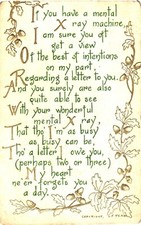 If you have a mental
X ray machine,
I am sure you oft
get a view
Of the best of intentions
on my part,
Regarding a letter to you.
And you surely are also
quite able to see
With your wonderful
mental X ray,
That tho' I'm as busy
as busy can be,
Tho' a letter I owe you,
(perhaps two or three)
My heart
ne'er forgets you
a day.
COPYRIGHT